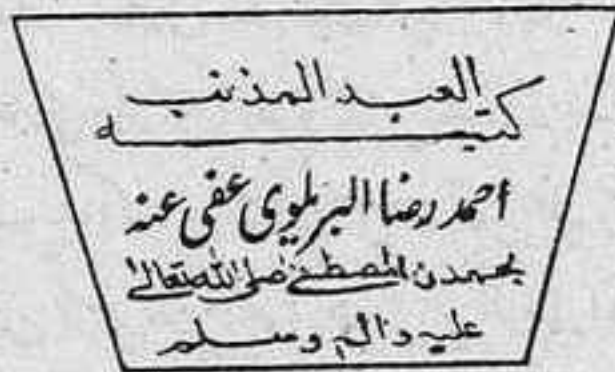 العبد المذنب
كتبه
احمد رضا البریلوی عفی عنہ
بمحمدن المصطفےٰ صلی اللہ تعالیٰ
علیہ واٰلہٖ وسلم